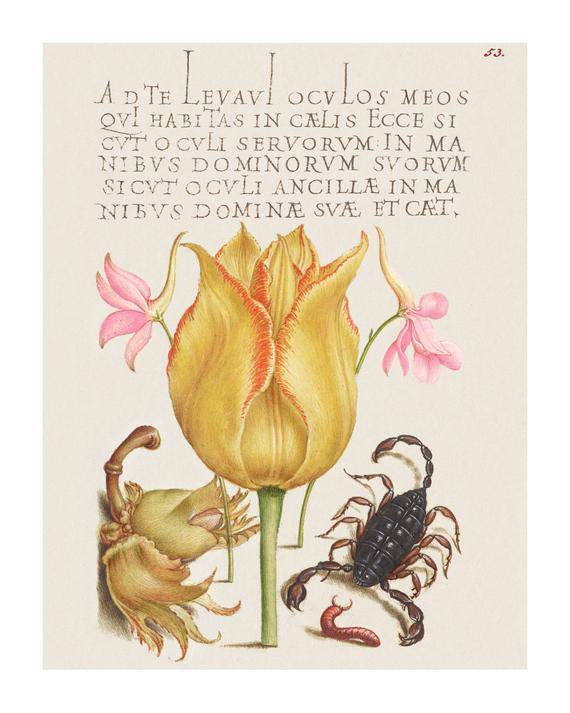 53.
AD TE LEVAVI OCVLOS MEOS
QVI HABITAS IN CÆLIS ECCE SI
CVT OCVLI SERVORVM: IN MA
NIBVS DOMINORVM SVORVM
SICVT OCVLI ANCILLÆ IN MA
NIBVS DOMINÆ SVÆ ET CÆT,